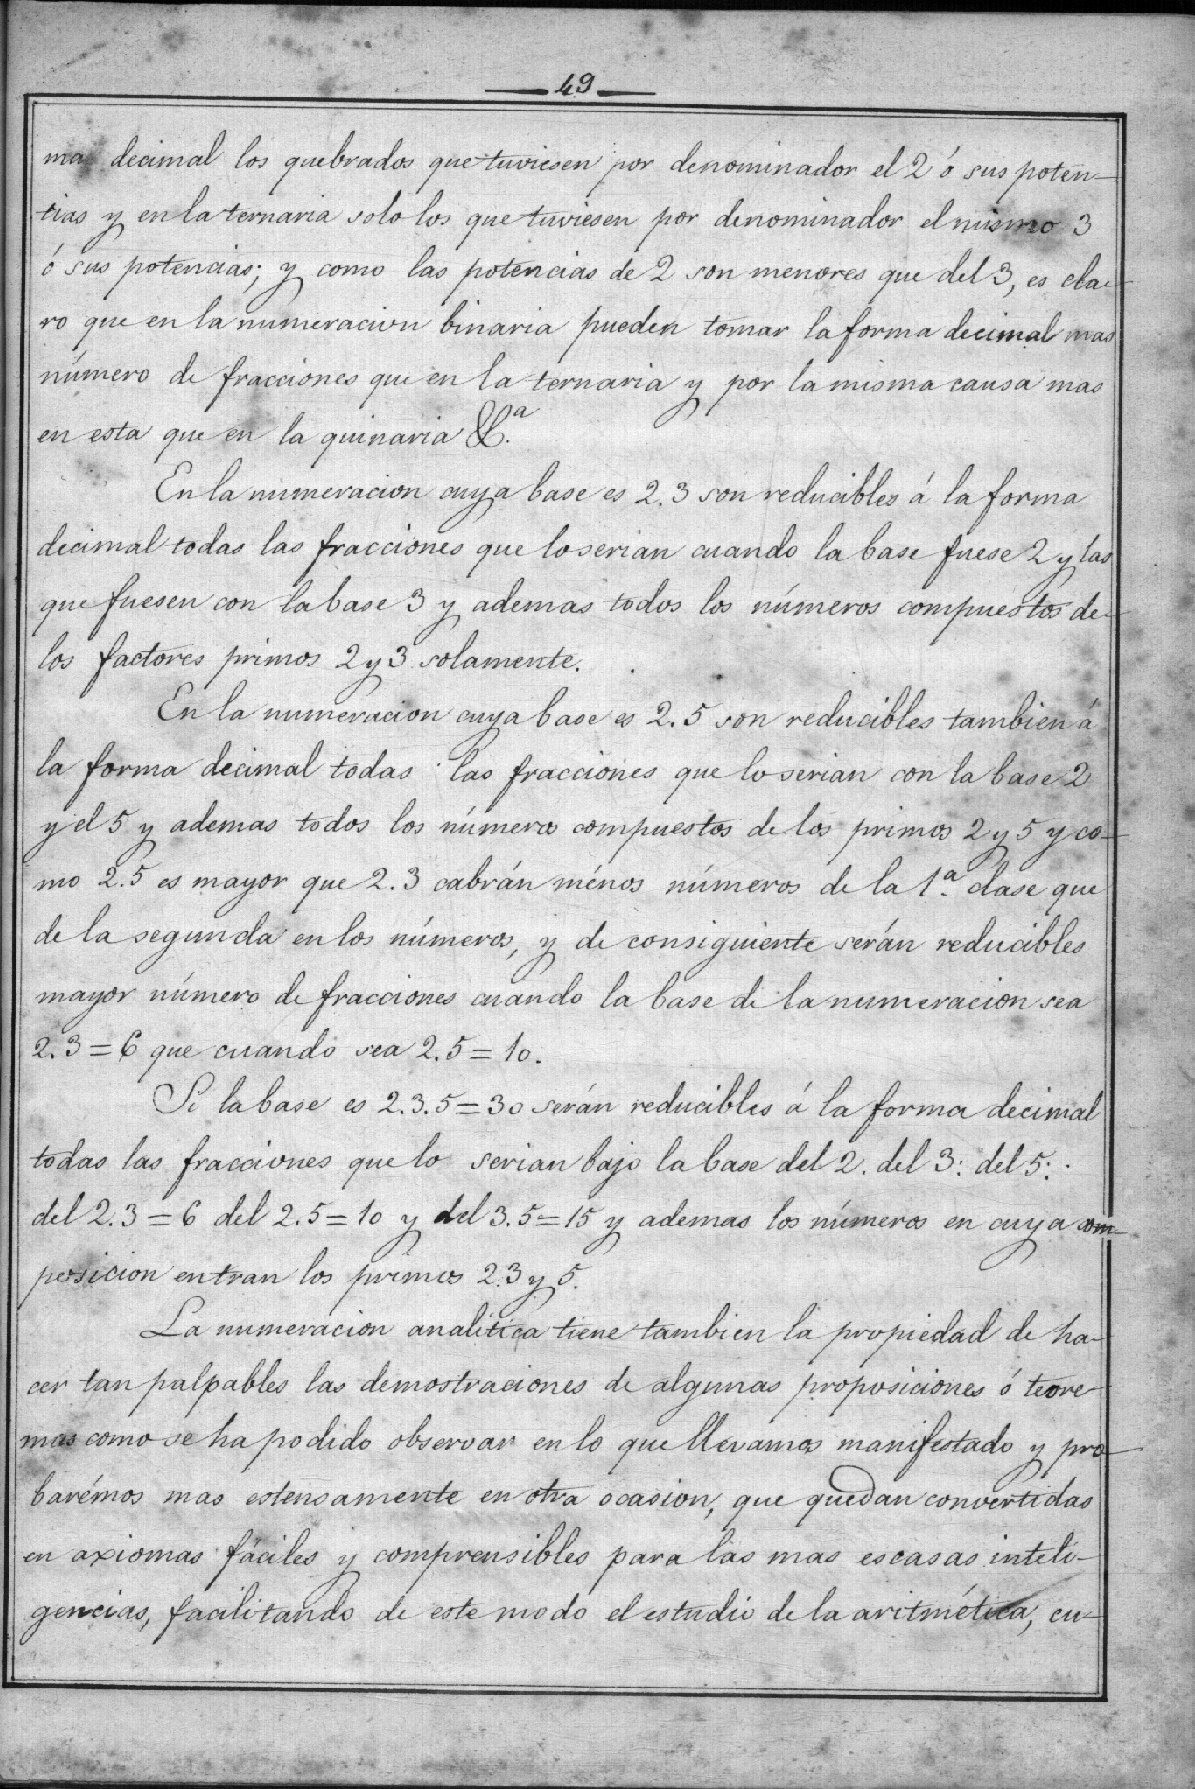 49
ma decimal los quebrados que tuviesen por denominador el 2 ó sus poten-
cias y en la ternaria solo los que tuviesen por denominador el mismo 3
ó sus potencias; y como las potencias de 2 son menores que del 3, es cla-
ro que en la numeracion binaria pueden tomar la forma decimal mas
número de fracciones que en la ternaria y por la misma causa mas
en esta que en la quinaria &.a
En la numeracion cuya base es 2.3 son reducibles á la forma
decimal todas las fracciones que lo serian cuando la base fuese 2 y las
que fuesen con la base 3 y ademas todos los números compuestos de
los factores primos 2 y 3 solamente.
En la numeracion cuya base es 2.5 son reducibles tambien á
la forma decimal todas las fracciones que lo serian con la base 2
y el 5 y ademas todos los números compuestos de los primos 2 y 5 y co-
mo 2.5 es mayor que 2.3 cabrán ménos números de la 1.a clase que
de la segunda en los números, y de consiguiente serán reducibles
mayor número de fracciones cuando la base de la numeracion sea
2.3=6 que cuando sea 2.5=10.
Si la base es 2.3.5=30 serán reducibles á la forma decimal
todas las fracciones que lo serian bajo la base del 2. del 3: del 5:
del 2.3=6 del 2.5=10 y del 3.5=15 y ademas los números en cuya com-
posicion entran los primos 2.3 y 5.
La numeracion analitica tiene tambien la propiedad de ha-
cer tan palpables las demostraciones de algunas proposiciones ó teore-
mas como se ha podido observar en lo que llevamos manifestado y pro-
barémos mas estensamente en otra ocasion, que quedan convertidas
en axiomas fáciles y comprensibles para las mas escasas inteli-
gencias, facilitando de este modo el estudio de la aritmética, cu-